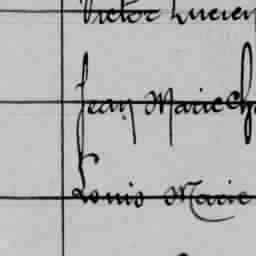 Victor Lucien
Jean Marie
Louis Marie